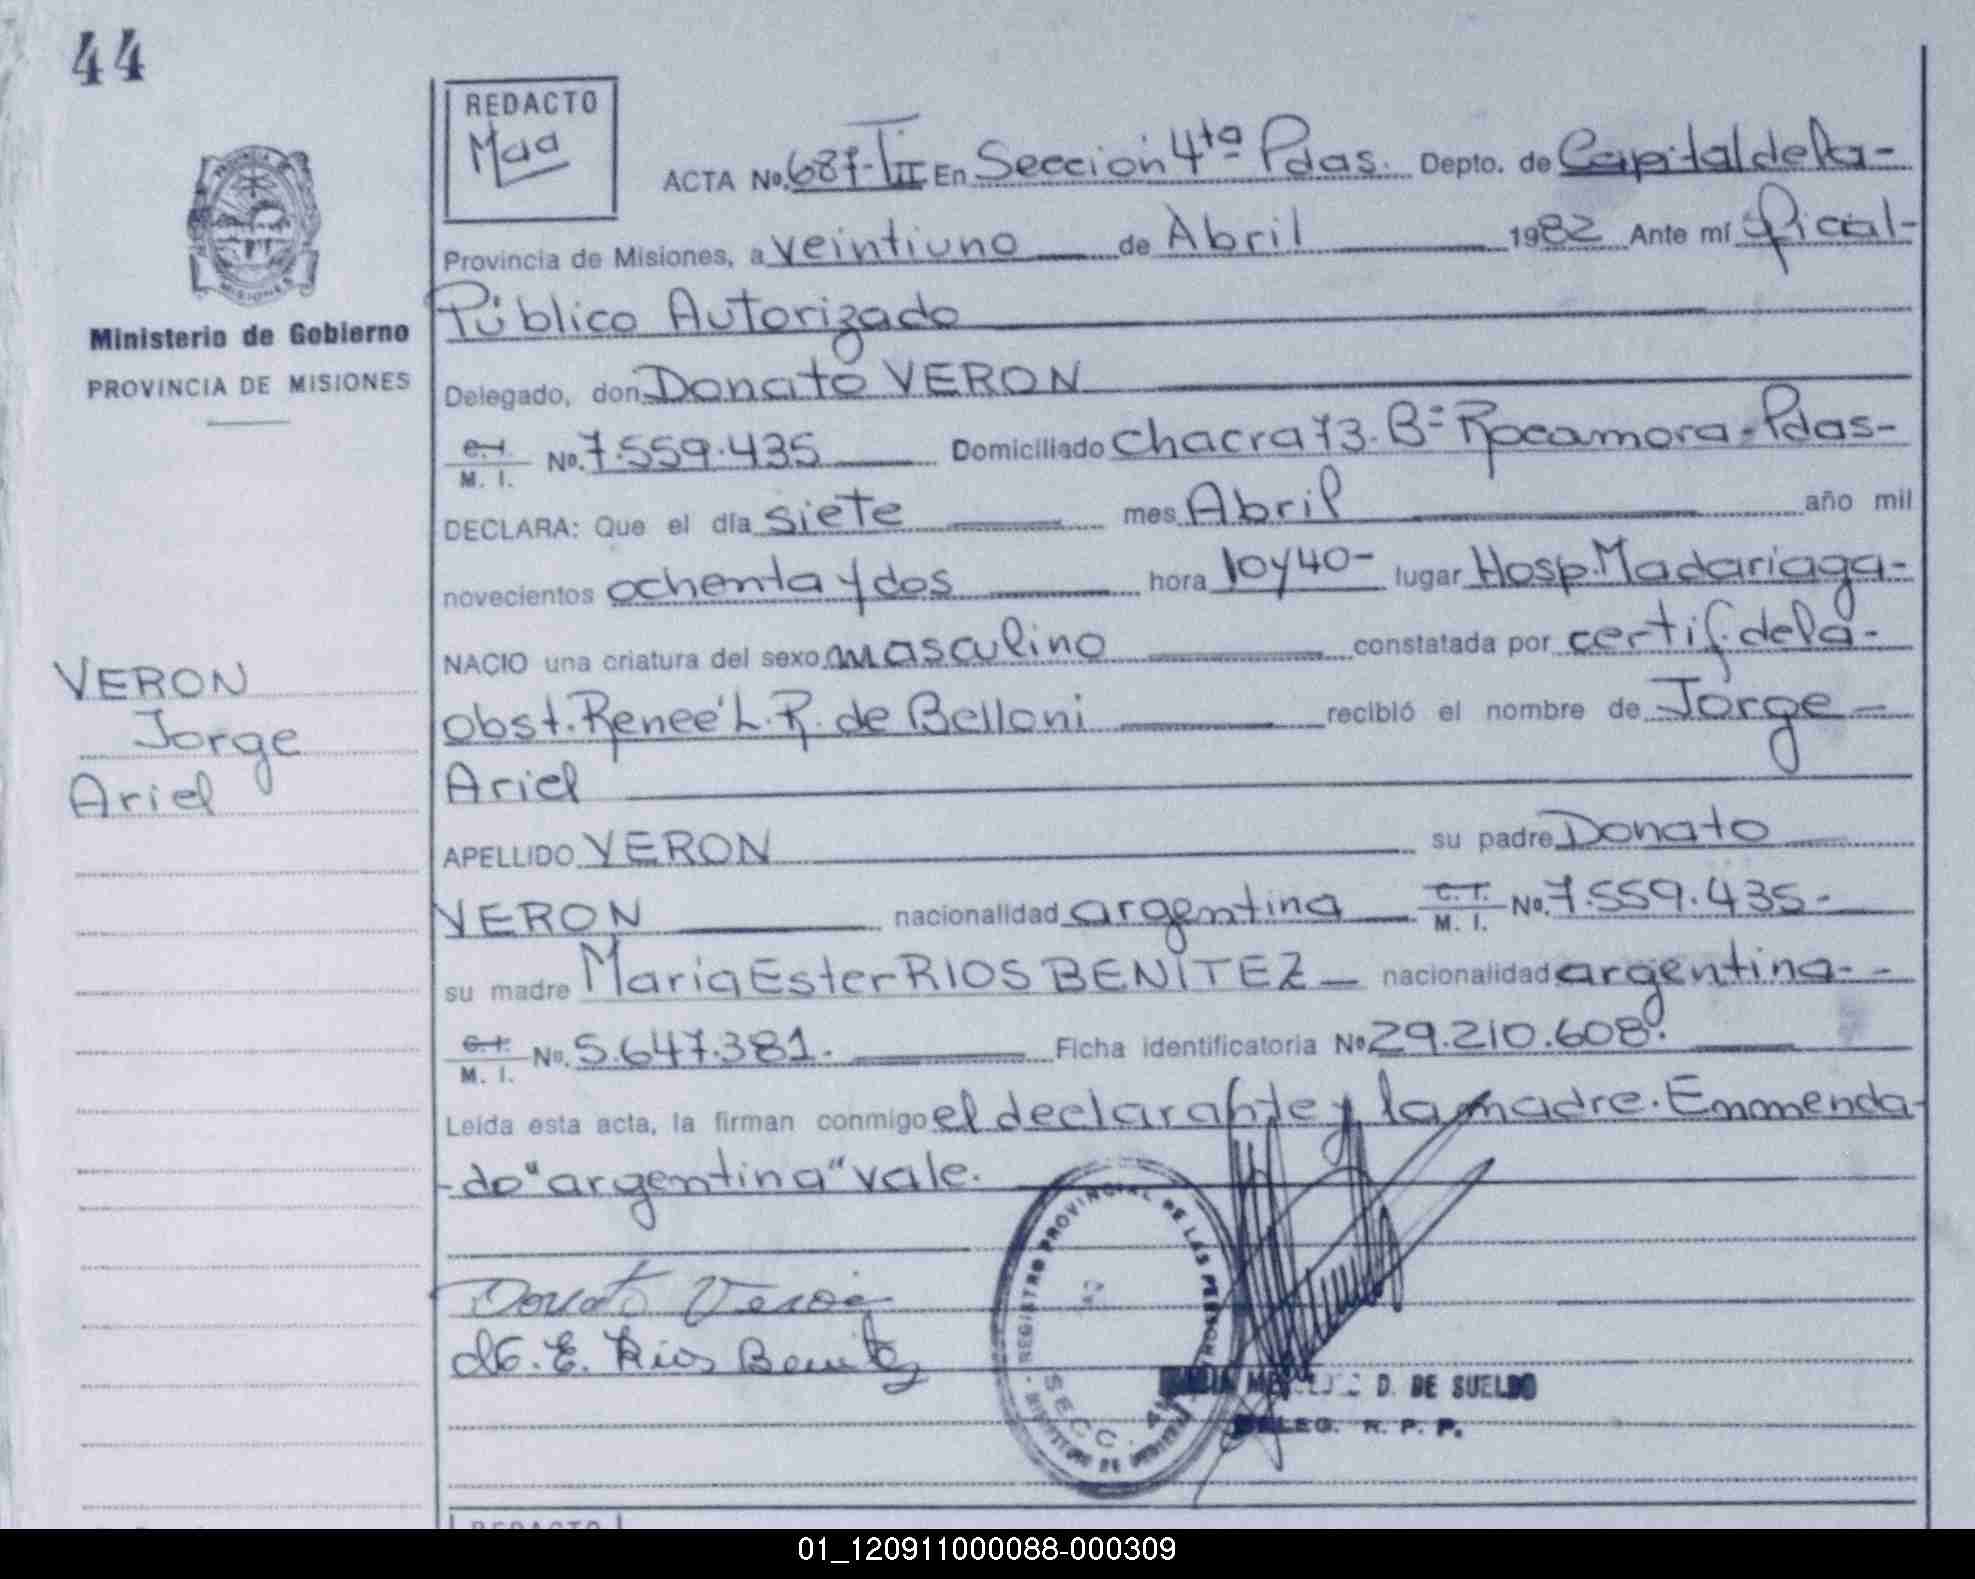 44
REDACTO
Maa
ACTA No. 687-TII En Sección 4ta Pdas. Depto. de Capital de la-
Provincia de Misiones, a veintiuno de Abril 1982 Ante mí Oficial-
Público Autorizado
MISIONES
Ministerio de Gobierno
PROVINCIA DE MISIONES
Delegado, don Donato VERON
C.I. M. I. No. 7.559.435 Domiciliado Chacra 73. Bº Rocamora-Pdas-
DECLARA: Que el día siete mes Abril año mil
novecientos ochenta y dos hora 10y40- lugar Hosp. Madariaga-
NACIO una criatura del sexo masculino constatada por certif. de la-
obst. Renee' L. R. de Belloni recibió el nombre de Jorge-
Ariel
VERON
Jorge
Ariel
APELLIDO VERON su padre Donato
VERON nacionalidad argentina C.I. M. I. No. 7.559.435-
su madre Maria Ester RIOS BENÍTEZ- nacionalidad argentina--
C.I. M. I. No. 5.647.381. Ficha identificatoria No 29.210.608.
Leída esta acta, la firman conmigo el declarante y la madre. Enmenda-
-do "argentina" vale.
Donato Veron
M. E. Rios Benitez
REGISTRO PROVINCIAL DE LAS PERSONAS
SECC. 4
D. DE SUELDO
DELEG. R. P. P.
REDACTO
01_120911000088-000309